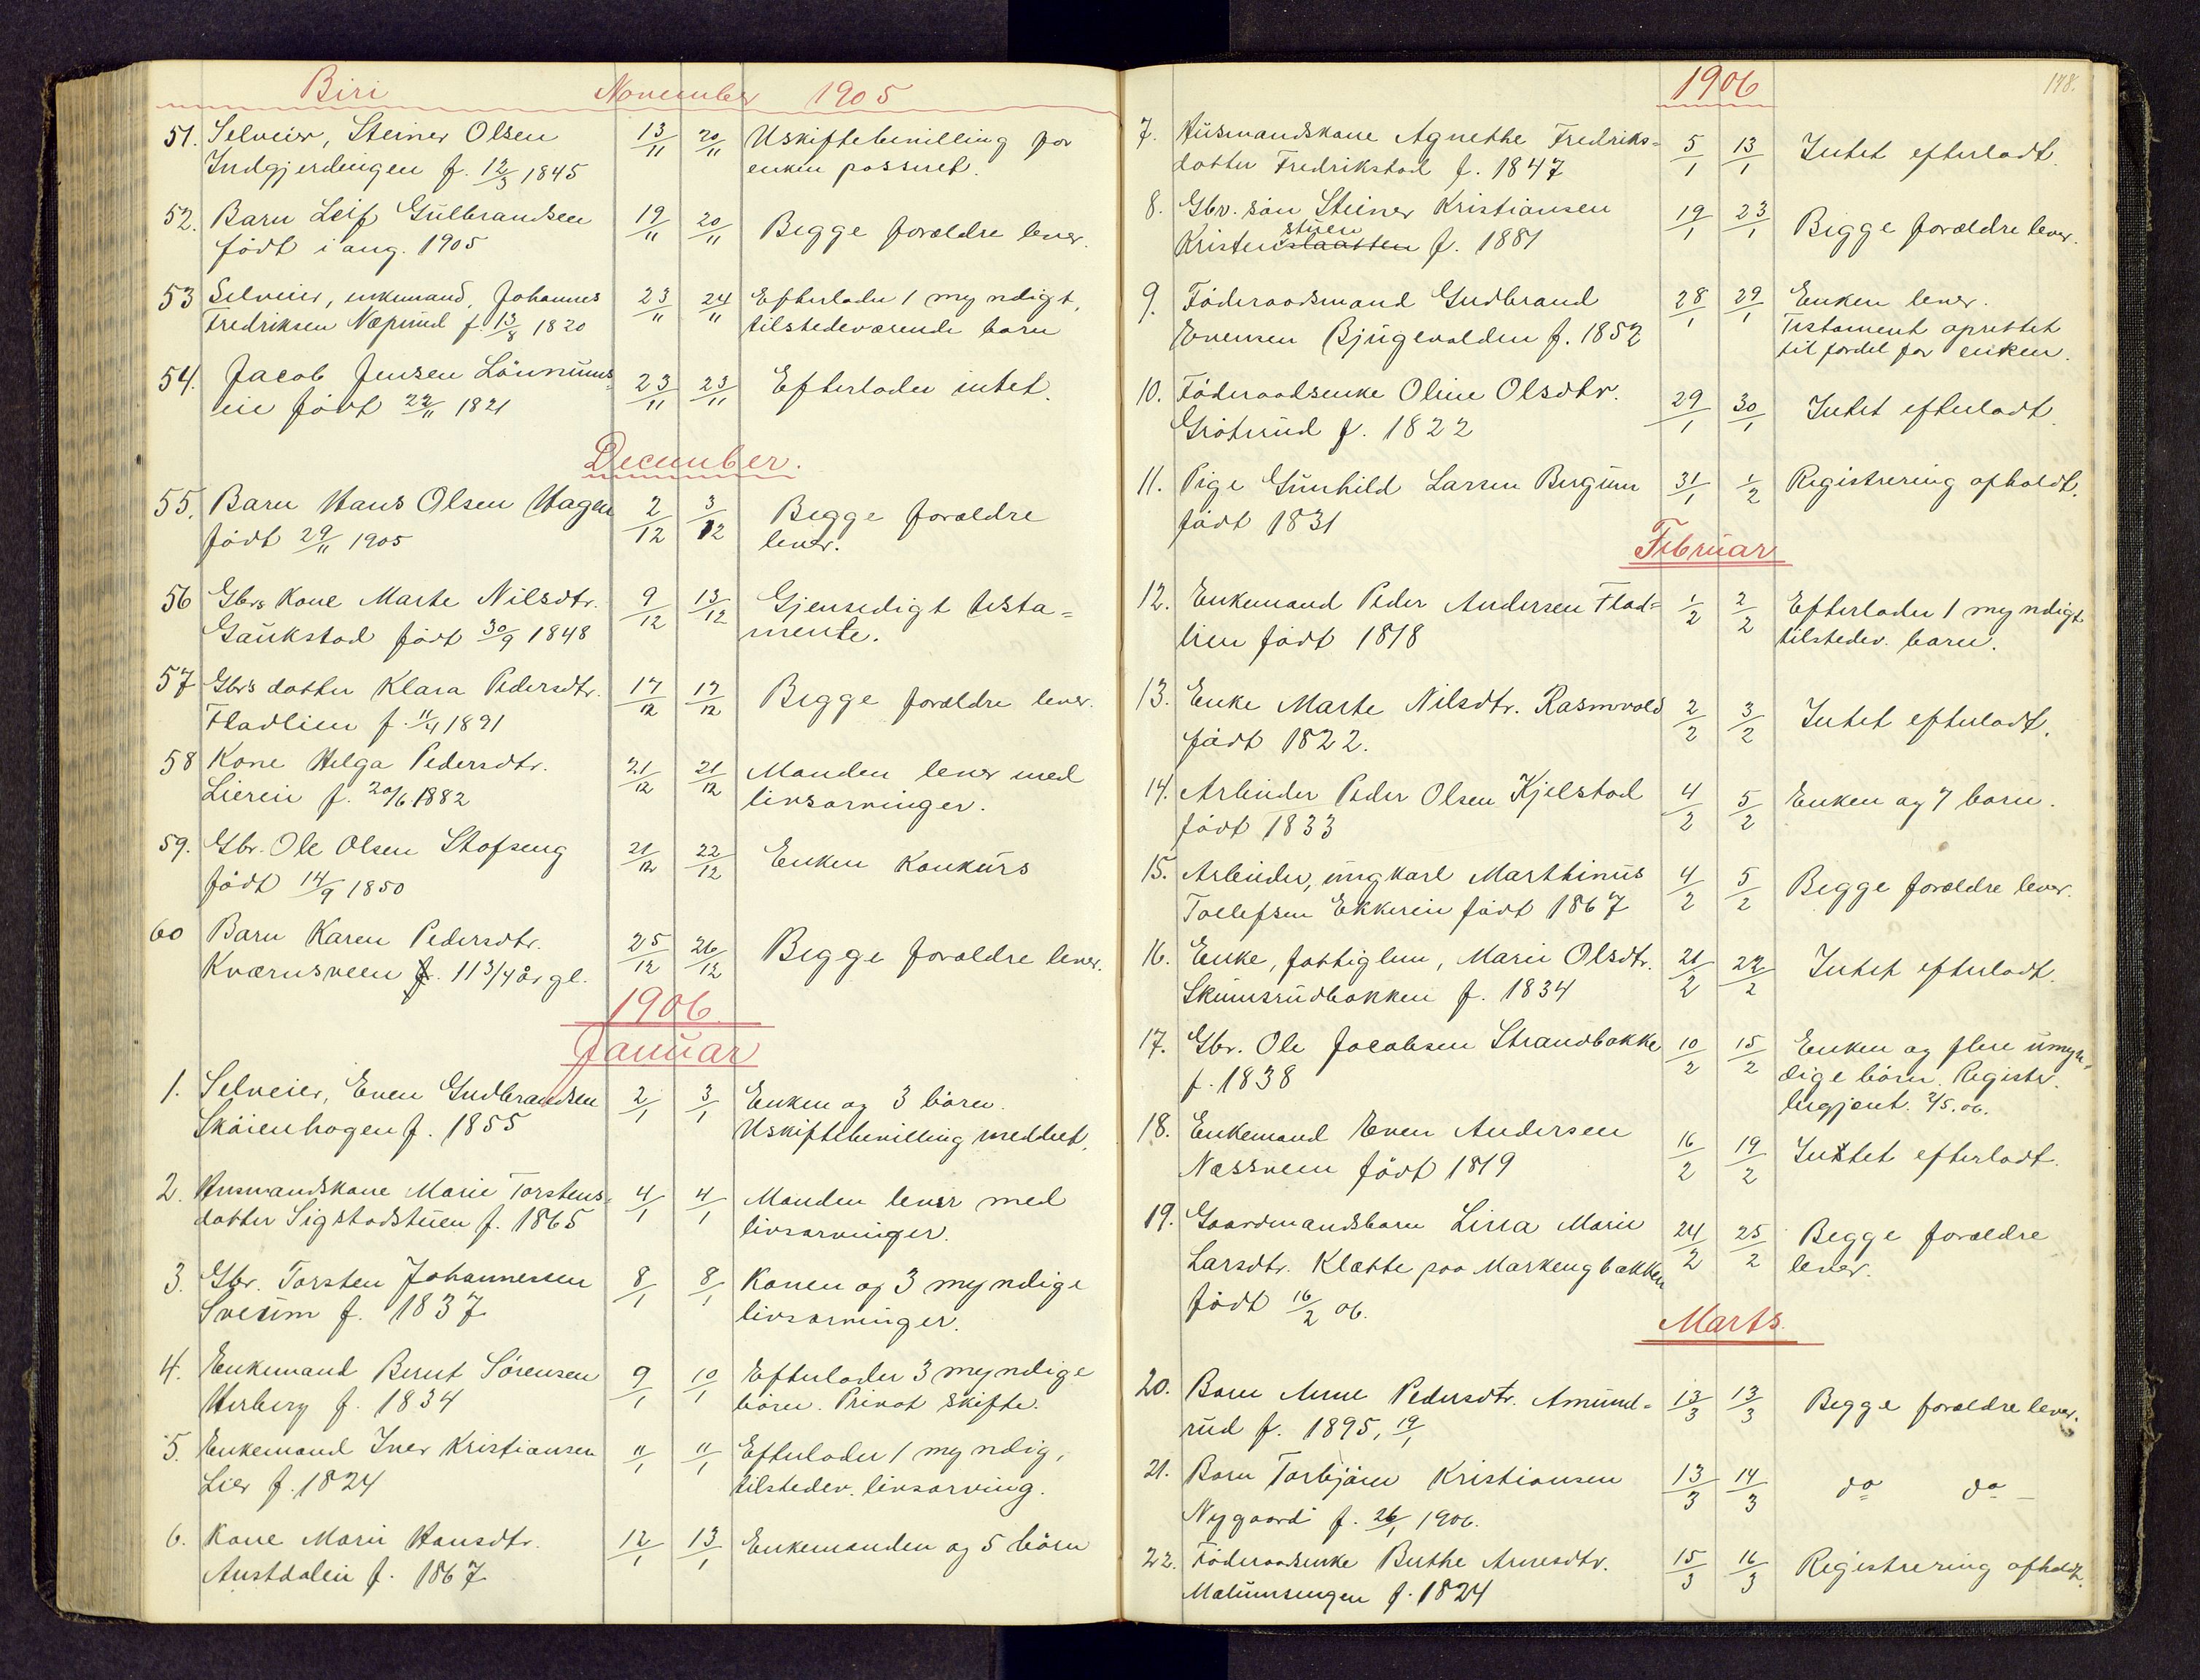 Biri November 1905
51. Selveier, Steiner Olsen 13/11 20/11 Uskiftebevilling for
Indgjerdengen f. 12/3 1845 enken passeret.
52. Barn Leif Gulbrandsen 19/11 20/11 Begge forældre lever.
født i aug. 1905
53 Selveier, enkemand, Johannes 23/11 24/11 Efterlader 1 myndigt,
Fredriksen Næperud f 13/8 1820 tilstedeværende barn
54. Jacob Jensen Lönnums- 23/11 23/11 Efterlader intet.
eie født 22/11 1821
December.
55. Barn Hans Olsen Hagen 2/12 3/12 Begge forældre
født 29/11 1905 lever.
56 Gbrs kone Marte Nilsdtr. 9/12 13/12 Gjensedigt testa=
Gaukstad født 30/9 1848 mente.
57 Gbr's datter Klara Pedersdtr. 17/12 17/12 Begge forældre lever.
Fladlien f. 11/4 1891
58 Kone Helga Pedersdtr. 21/12 21/12 Manden lever med
Liereie f. 20/6 1882 livsarvinger.
59. Gbr. Ole Olsen Stofseng 21/12 22/12 Enken Konkurs
født 14/9 1850
60 Barn Karen Pedersdtr. 25/12 26/12 Begge forældre lever.
Kværnsveen f. 11 3/4 år gl.
1906
Januar
1. Selveier, Even Gudbrandsen 2/1 3/1 Enken og 3 börn.
Skäienhagen f. 1855 Uskiftebevilling meddelt.
2. Husmandskone Marie Torstens= 4/1 4/1 Manden lever med
datter Sigstadstuen f. 1865 livsarvinger.
3. Gbr. Torsten Johannessen 8/1 8/1 Konen og 3 myndige
Sveum f. 1837 livsarvinger.
4. Enkemand Bernt Sörensen 9/1 10/1 Efterlader 3 myndige
Herberg f. 1834 börn. Privat skifte.
5. Enkemand Iver Kristiansen 11/1 11/1 Efterlader 1 myndig,
Lier f. 1824 tilstedev. livsarving.
6. Kone Marie Hansdtr. 12/1 13/1 Enkemanden og 5 börn
Austdaleie f. 1867
1906 148.
7. Husmandskone Agnethe Fredriks= 5/1 13/1 Intet efterladt.
datter Fredrikstad f. 1847
8. Gbr. sön Steiner Kristiansen 19/1 23/1 Begge forældre lever.
stuen
Kristenslaatten f. 1881
9. Föderaadsmand Gudbrand 28/1 29/1 Enken lever.
Evensen Bjugevalden f. 1852 Testament oprettet
til fordel for enken.
10. Föderaadsenke Oline Olsdtr. 29/1 30/1 Intet efterladt.
Gröterud f. 1822
11. Pige Gunhild Larsen Bergum 31/1 1/2 Registrering afholdt.
født 1831
Februar
12. Enkemand Peder Andersen Flad= 1/2 2/2 Efterlader 1 myndigt
lien født 1818 tilstedev. barn.
13. Enke Marte Nilsdtr. Rasmvold 2/2 3/2 Intet efterladt.
født 1822.
14. Arbeider Peder Olsen Kjelstad 4/2 5/2 Enken og 7 børn.
født 1833
15. Arbeider, ungkarl Marthinus 4/2 5/2 Begge forældre lever.
Tollefsen Ekkereie født 1867
16. Enke, fattiglem, Marie Olsdtr. 21/2 22/2 Intet efterladt.
Skumsrudbakken f. 1834
17. Gbr. Ole Jacobsen Strandbakke 10/2 15/2 Enken og flere umyn-
f. 1838 dige börn. Registr.
begjært. 2/5.06.
18. Enkemand Even Andersen 16/2 19/2 Intet efterladt.
Næssveen født 1819
19. Gaardmandsbarn Lina Marie 24/2 25/2 Begge forældre
Larsdtr. Klætte paa Markengbakken lever.
født 16/2 06.
Marts.
20. Barn Anne Pedersdtr. Amund= 13/3 13/3 Begge forældre lever.
rud f. 1895, 19/1
21. Barn Torbjörn Kristiansen 13/3 14/3 do do —
Nygaard f. 26/1 1906.
22. Föderaadsenke Berthe Arnesdtr. 15/3 16/3 Registrering afholdt.
Mælumsengen f. 1824